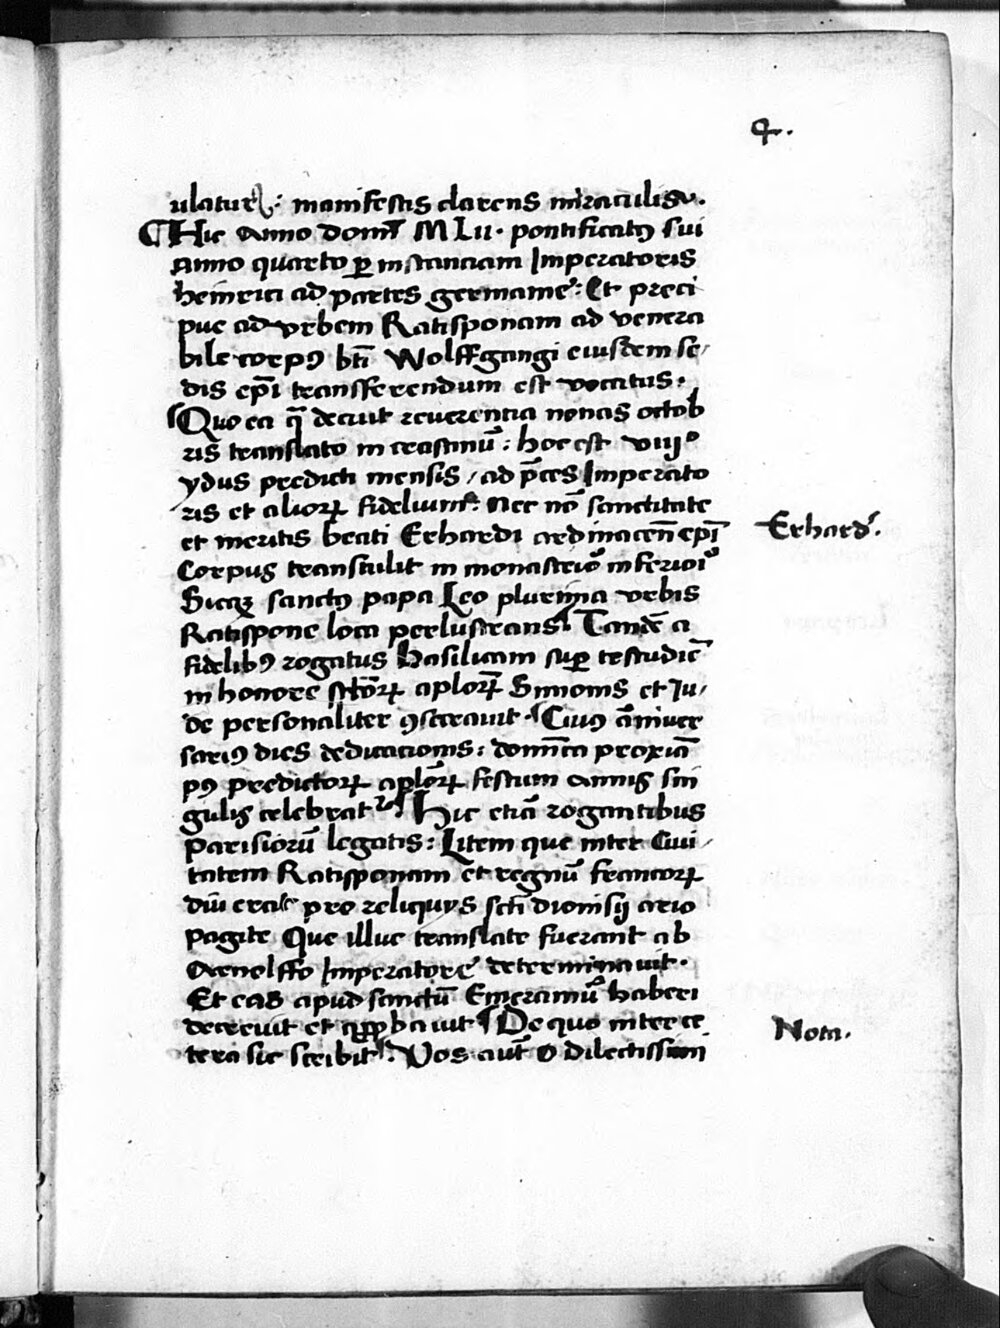 4.
ulatur: manifestis clarens miraculis.
Hic Anno Domī MLii. pontificatꝰ sui
Anno quarto ꝑ instanciam Imperatoris
heinrici ad partes germanie: Et preci
pue ad vrbem Ratisponam ad venera
bile corpꝰ bti Wolffgangi eiusdem se/
dis epī transferendum est vocatus.
Quo ea q̄ decuit reuerentia nonas octob
ris translato in crastinū: hoc est viijº
ydus predicti mensis / ad p̄ces Imperato
ris et alioꝝ fidelium: Nec nō sanctitate
et meritis beati Erhardi ardinacen̄ epī
Erhard.
Corpus transtulit in monasterio inferiori
Sicqꝫ sanctꝰ papa Leo plurima vrbis
Ratispone loca perlustrans Tandē a
fidelibꝰ rogatus basilicam suꝑ testudiē
in honore sctōꝝ aplōꝝ Simonis et Iu/
de personaliter ꝯsecrauit. Cuiꝰ āniuer
sariꝰ dies dedicacionis: domīca proxīa
pꝰ predictoꝝ aplōꝝ festum Annis sin
gulis celebrat᷑ Hic etiā rogantibus
parisiorū legatis: Litem que inter Ciui/
tatem Ratisponam et regnū francoꝝ
diu erat pro reliquys scti dionisij ario
pagite Que illuc translate fuerant ab
Arnolffo Imperatore determinauit.
Et eas apud sanctū Emeramū haberi
decreuit et aꝓbauit De quo inter ce
Nota.
tera sic scribit. Vos aut̄ o dilectissimi